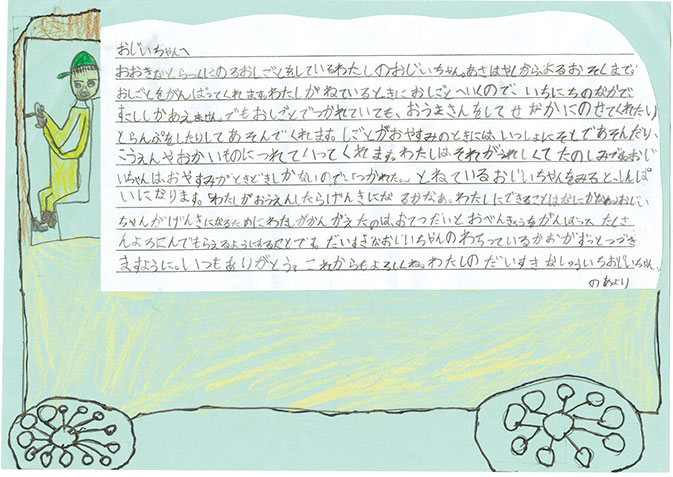 おじいちゃんへ
おおきなとらっくにのるおしごとをしているわたしのおじいちゃん。あさはやくから、よるおそくまで。
おしごとをがんばってくれます。わたしがねているときにおしごとへいくので、いちにちのなかで
すこししかあえません。でもおしごとでつかれていても、おうまさんをしてせなかにのせてくれたり
とらんぷをしたりしてあそんでくれます。しごとがおやすみのときには、いっしょにそとであそんだり、
こうえんやおかいものにつれていってくれます。わたしはそれがうれしくてたのしみです。おじ
いちゃんは、おやすみがときどきしかないので「つかれた。」とねているおじいちゃんをみるとしんぱ
いになります。「わたしがおうえんしたらげんきになるかなぁ。わたしにできることはなにかなぁ。」おじい
ちゃんがげんきになるためにわたしがかんがえたのは、おてつだいとおべんきょうをがんばって、たくさ
んよろこんでもらえるようにすることです。だいすきなおじいちゃんのわらっているかおがずっとつづき
ますように。いつもありがとう。これからもよろしくね。わたしのだいすきなしゅういちおじいちゃん。
のあより